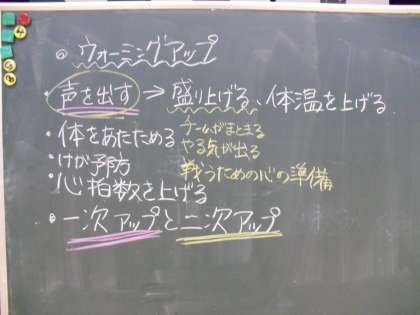 ◎ ウォーミングアップ
・声を出す → 盛り上げる、体温を上げる
・体をあたためる
チームがまとまる
やる気が出る
戦うための心の準備
・けが予方
・心拍数を上げる
◎ 一次アップと二次アップ